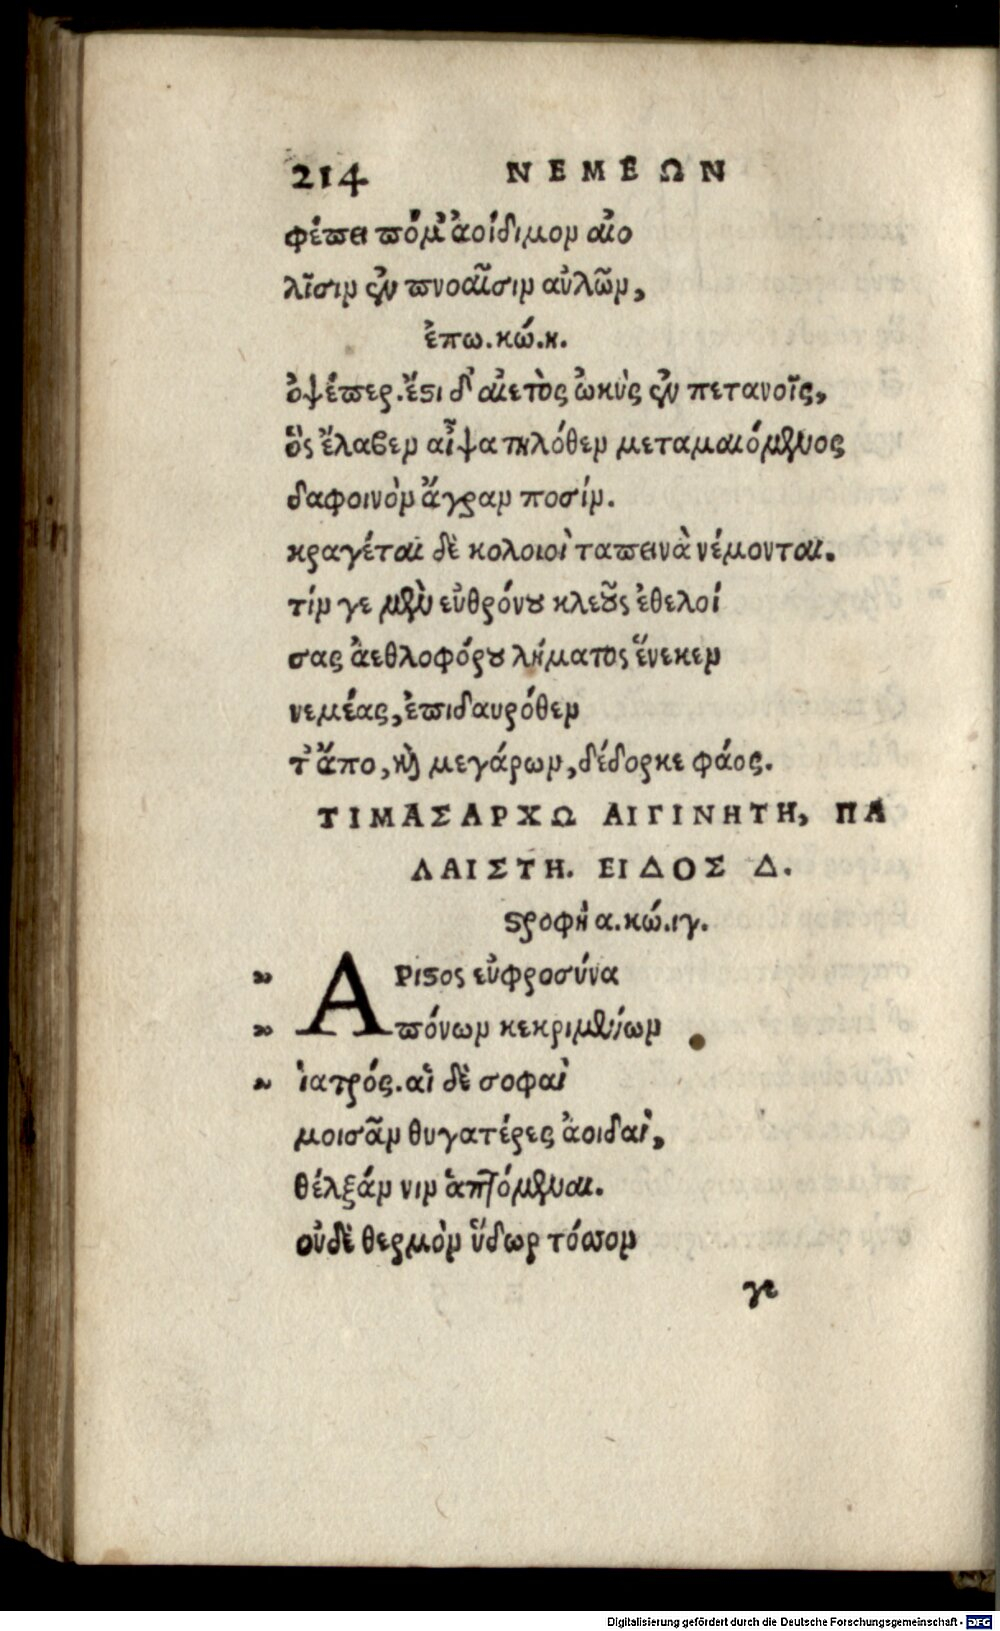 214 ΝΕΜΕΩΝ
φέπει πόμ' ἀοίδιμον αἰο
λῇσιν ἐν πνοαῖσιν αὐλῶν,
ἐπω. κώ. κ.
ὀψέπερ. ἔστι δ' αἰετὸς ὠκὺς ἐν πετανοῖς,
ὃς ἔλαβεν αἶψα τηλόθεν μεταμαιόμενος
δαφοινὸν ἄγραν ποσίν.
κραγέται δὲ κολοιοὶ ταπεινὰ νέμονται.
τίν γε μὲν εὐθρόνου κλεοῦς ἐθελοί
σας ἀεθλοφόρου λήματος ἕνεκεν
νεμέας, ἐπιδαυρόθεν
τ' ἄπο, καὶ μεγάρων, δέδορκε φάος.
ΤΙΜΑΣΑΡΧΩ ΑΙΓΙΝΗΤΗ, ΠΑ
ΛΑΙΣΤΗ. ΕΙΔΟΣ Δ.
στροφὴ α. κώ. ιγ.
ΑΡιστος εὐφροσύνα
πόνων κεκριμένων
ἰατρός. αἱ δὲ σοφαὶ
μοισᾶν θυγατέρες ἀοιδαὶ,
θέλξάν νιν ἁπτόμεναι.
οὐδὲ θερμὸν ὕδωρ τόσον
γε
Digitalisierung gefördert durch die Deutsche Forschungsgemeinschaft - DFG